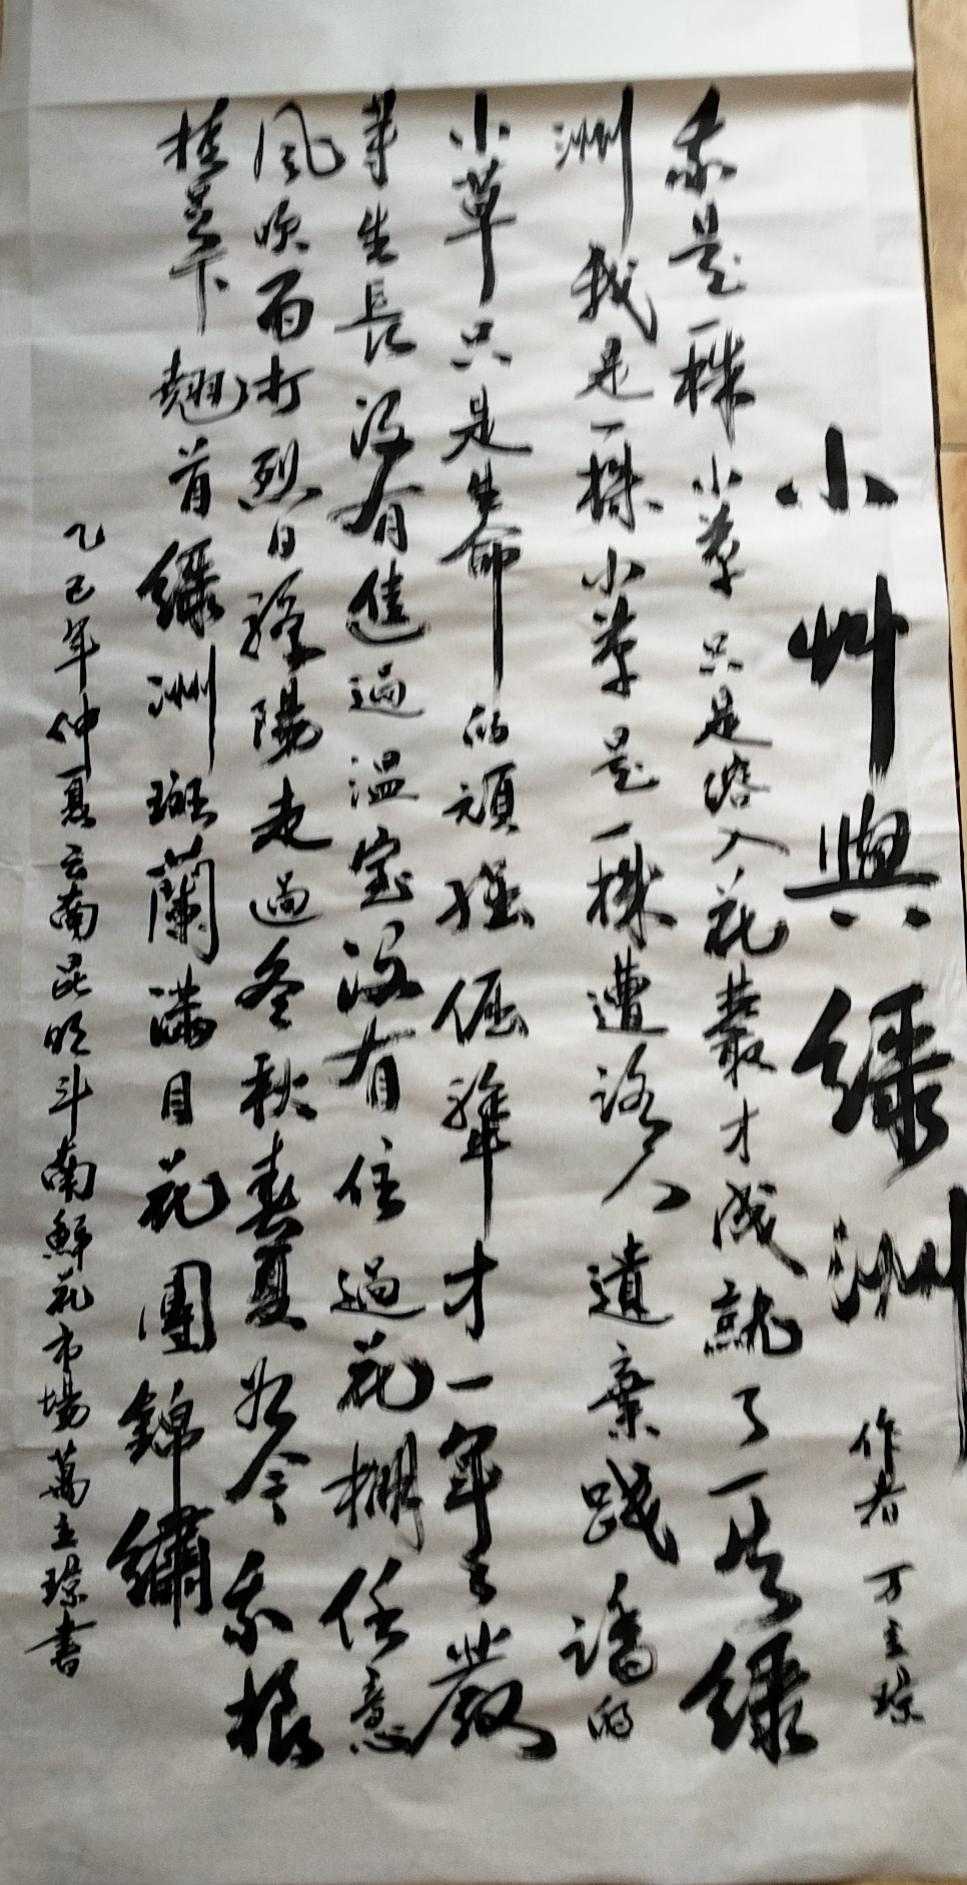 小艸與綠洲
作者 万立琼
我是一株小草只是溶入花叢才成就了一片綠
洲我是一株小草是一株遭路人遺棄踐踏的
小草只是生命的頑強倔犟才一年年發
芽生長沒有進過溫室沒有住過花棚任意
風吹雨打烈日驕陽走過冬秋春夏如今我根
植天下翹首綠洲斑蘭滿目花團錦繡
乙巳年仲夏云南昆明斗南鮮花市場萬立琼書